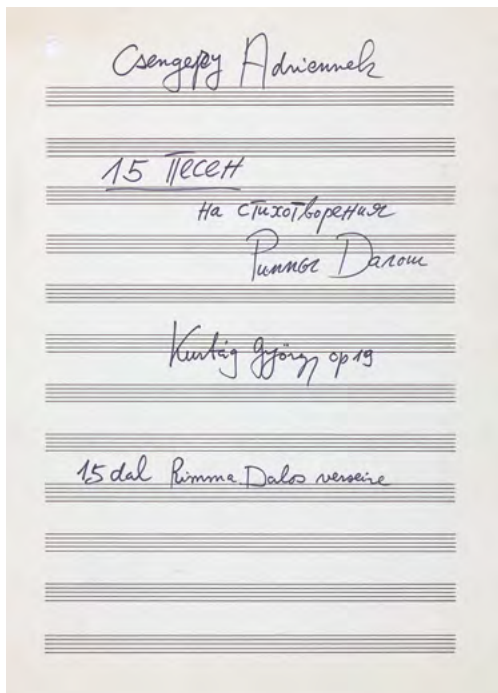 Csengery Adriennek
15 ПЕСЕН
на стихотворения
Риммы Далош
Kurtág György op 19
15 dal Rimma Dalos verseire